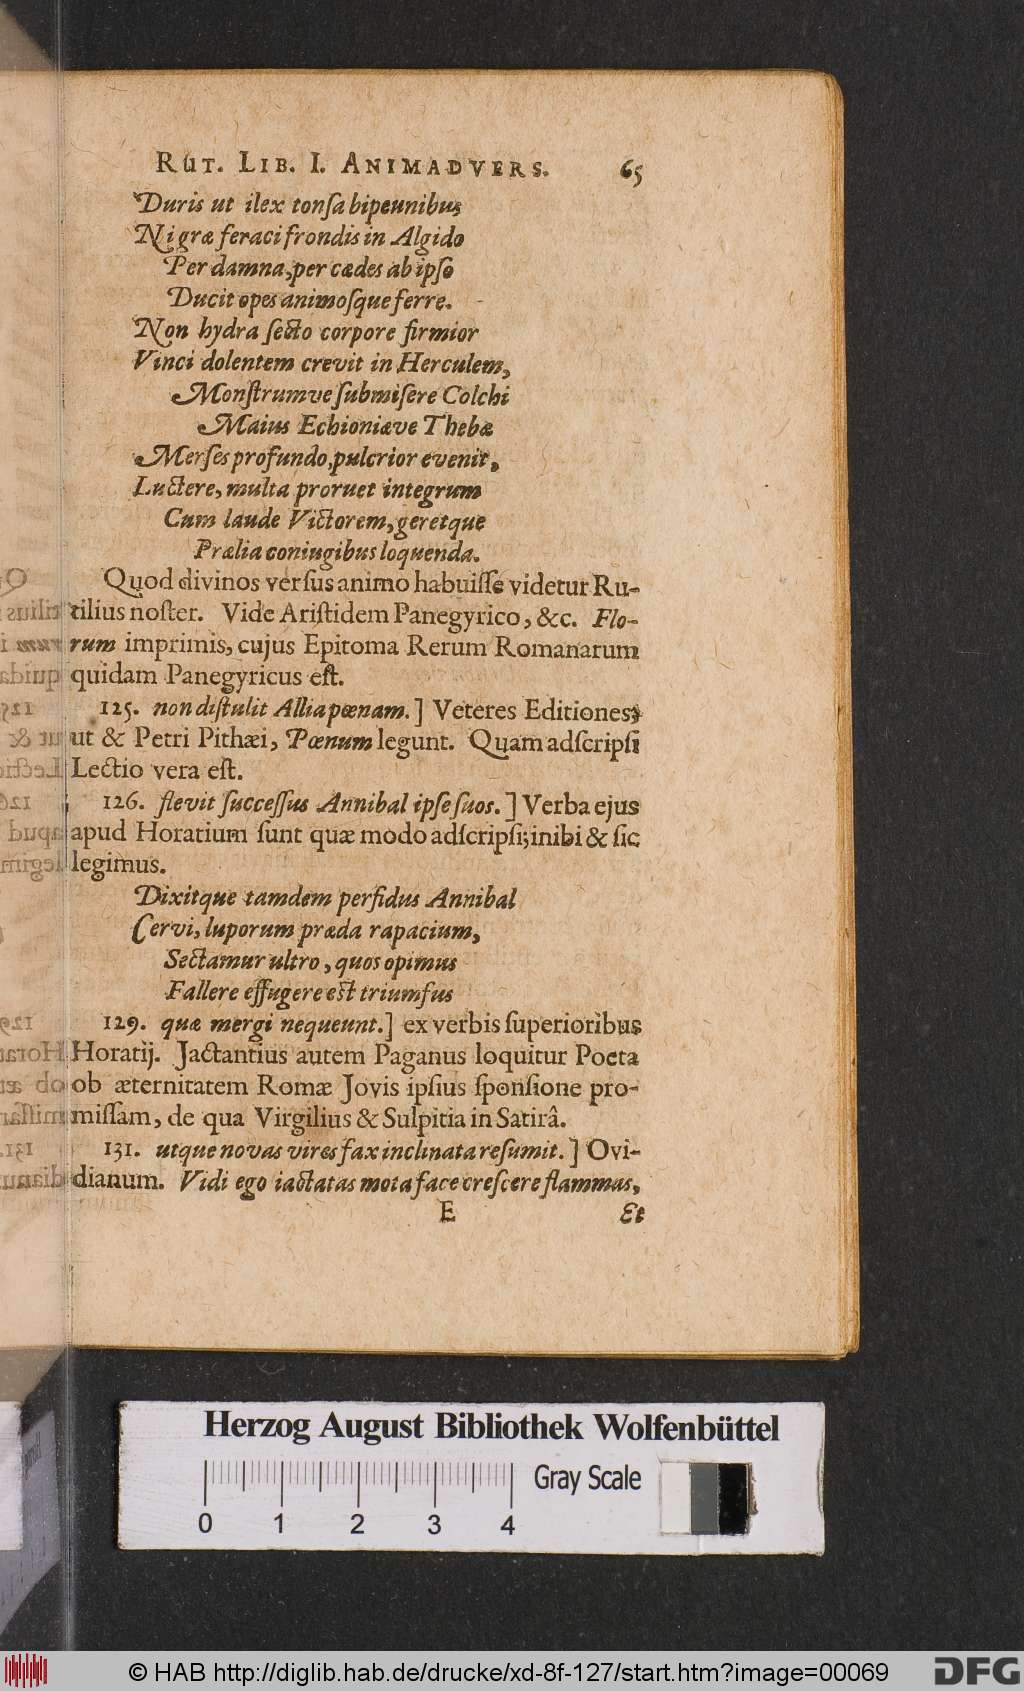 RUT. LIB. I. ANIMADVERS. 65
Duris ut ilex tonſa bipeunibus
Nigræ feraci frondis in Algido
Per damna, per cædes ab ipſo
Ducit opes animoſque ferre.
Non hydra ſecto corpore firmior
Vinci dolentem crevit in Herculem,
Monſtrumve ſubmiſere Colchi
Maius Echioniæve Thebæ
Merſes profundo, pulcrior evenit,
Luctere, multa proruet integrum
Cum laude Victorem, geretque
Prælia coniugibus loquenda.
Quod divinos verſus animo habuiſſe videtur Ru-
tilius noſter. Vide Ariſtidem Panegyrico, &c. Flo-
rum imprimis, cujus Epitoma Rerum Romanarum
quidam Panegyricus eſt.
125. non diſtulit Allia pœnam.] Veteres Editiones,
ut & Petri Pithæi, Pœnum legunt. Quam adſcripſi
Lectio vera eſt.
126. flevit ſucceſſus Annibal ipſe ſuos.] Verba ejus
apud Horatium ſunt quæ modo adſcripſi; inibi & ſic
legimus.
Dixitque tamdem perfidus Annibal
Cervi, luporum præda rapacium,
Sectamur ultro, quos opimus
Fallere effugere eſt triumfus
129. quæ mergi nequeunt.] ex verbis ſuperioribus
Horatij. Jactantius autem Paganus loquitur Poeta
ob æternitatem Romæ Jovis ipſius ſponſione pro-
miſſam, de qua Virgilius & Sulpitia in Satirâ.
131. utque novas vires fax inclinata reſumit.] Ovi-
dianum. Vidi ego iactatas mota face creſcere flammas,
E Et
Herzog August Bibliothek Wolfenbüttel
Gray Scale
0 1 2 3 4
© HAB http://diglib.hab.de/drucke/xd-8f-127/start.htm?image=00069
DFG